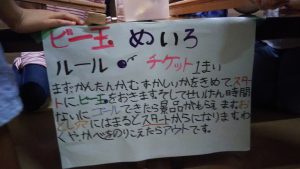 ビー玉 めいろ
ルール チケット1まい
まずかんたんかむずかしいかをきめてスタート
にビー玉をおきますそしてせいげん時間
ないにゴールできたら景品がもらえますお
としあなにはまるとスタートからになります わ
くや、かべをのりこえたらアウトです。